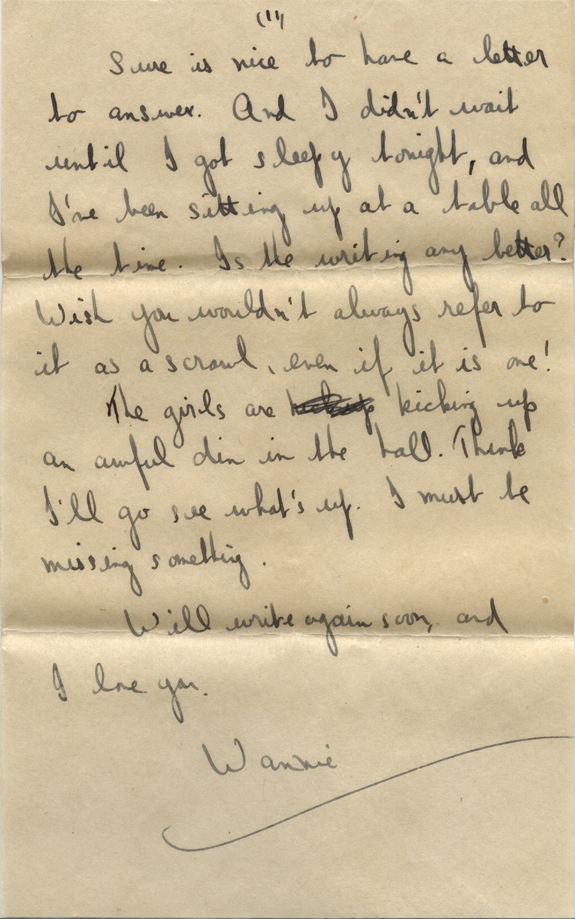 (11)
Sure is nice to have a letter
to answer. And I didn't wait
until I got sleepy tonight, and
I've been sitting up at a table all
the time. Is the writing any better?
Wish you wouldn't always refer to
it as a scrawl, even if it is one!
The girls are kicking up
an awful din in the hall. Think
I'll go see what's up. I must be
missing something.
Will write again soon, and
I love you.
Wannie